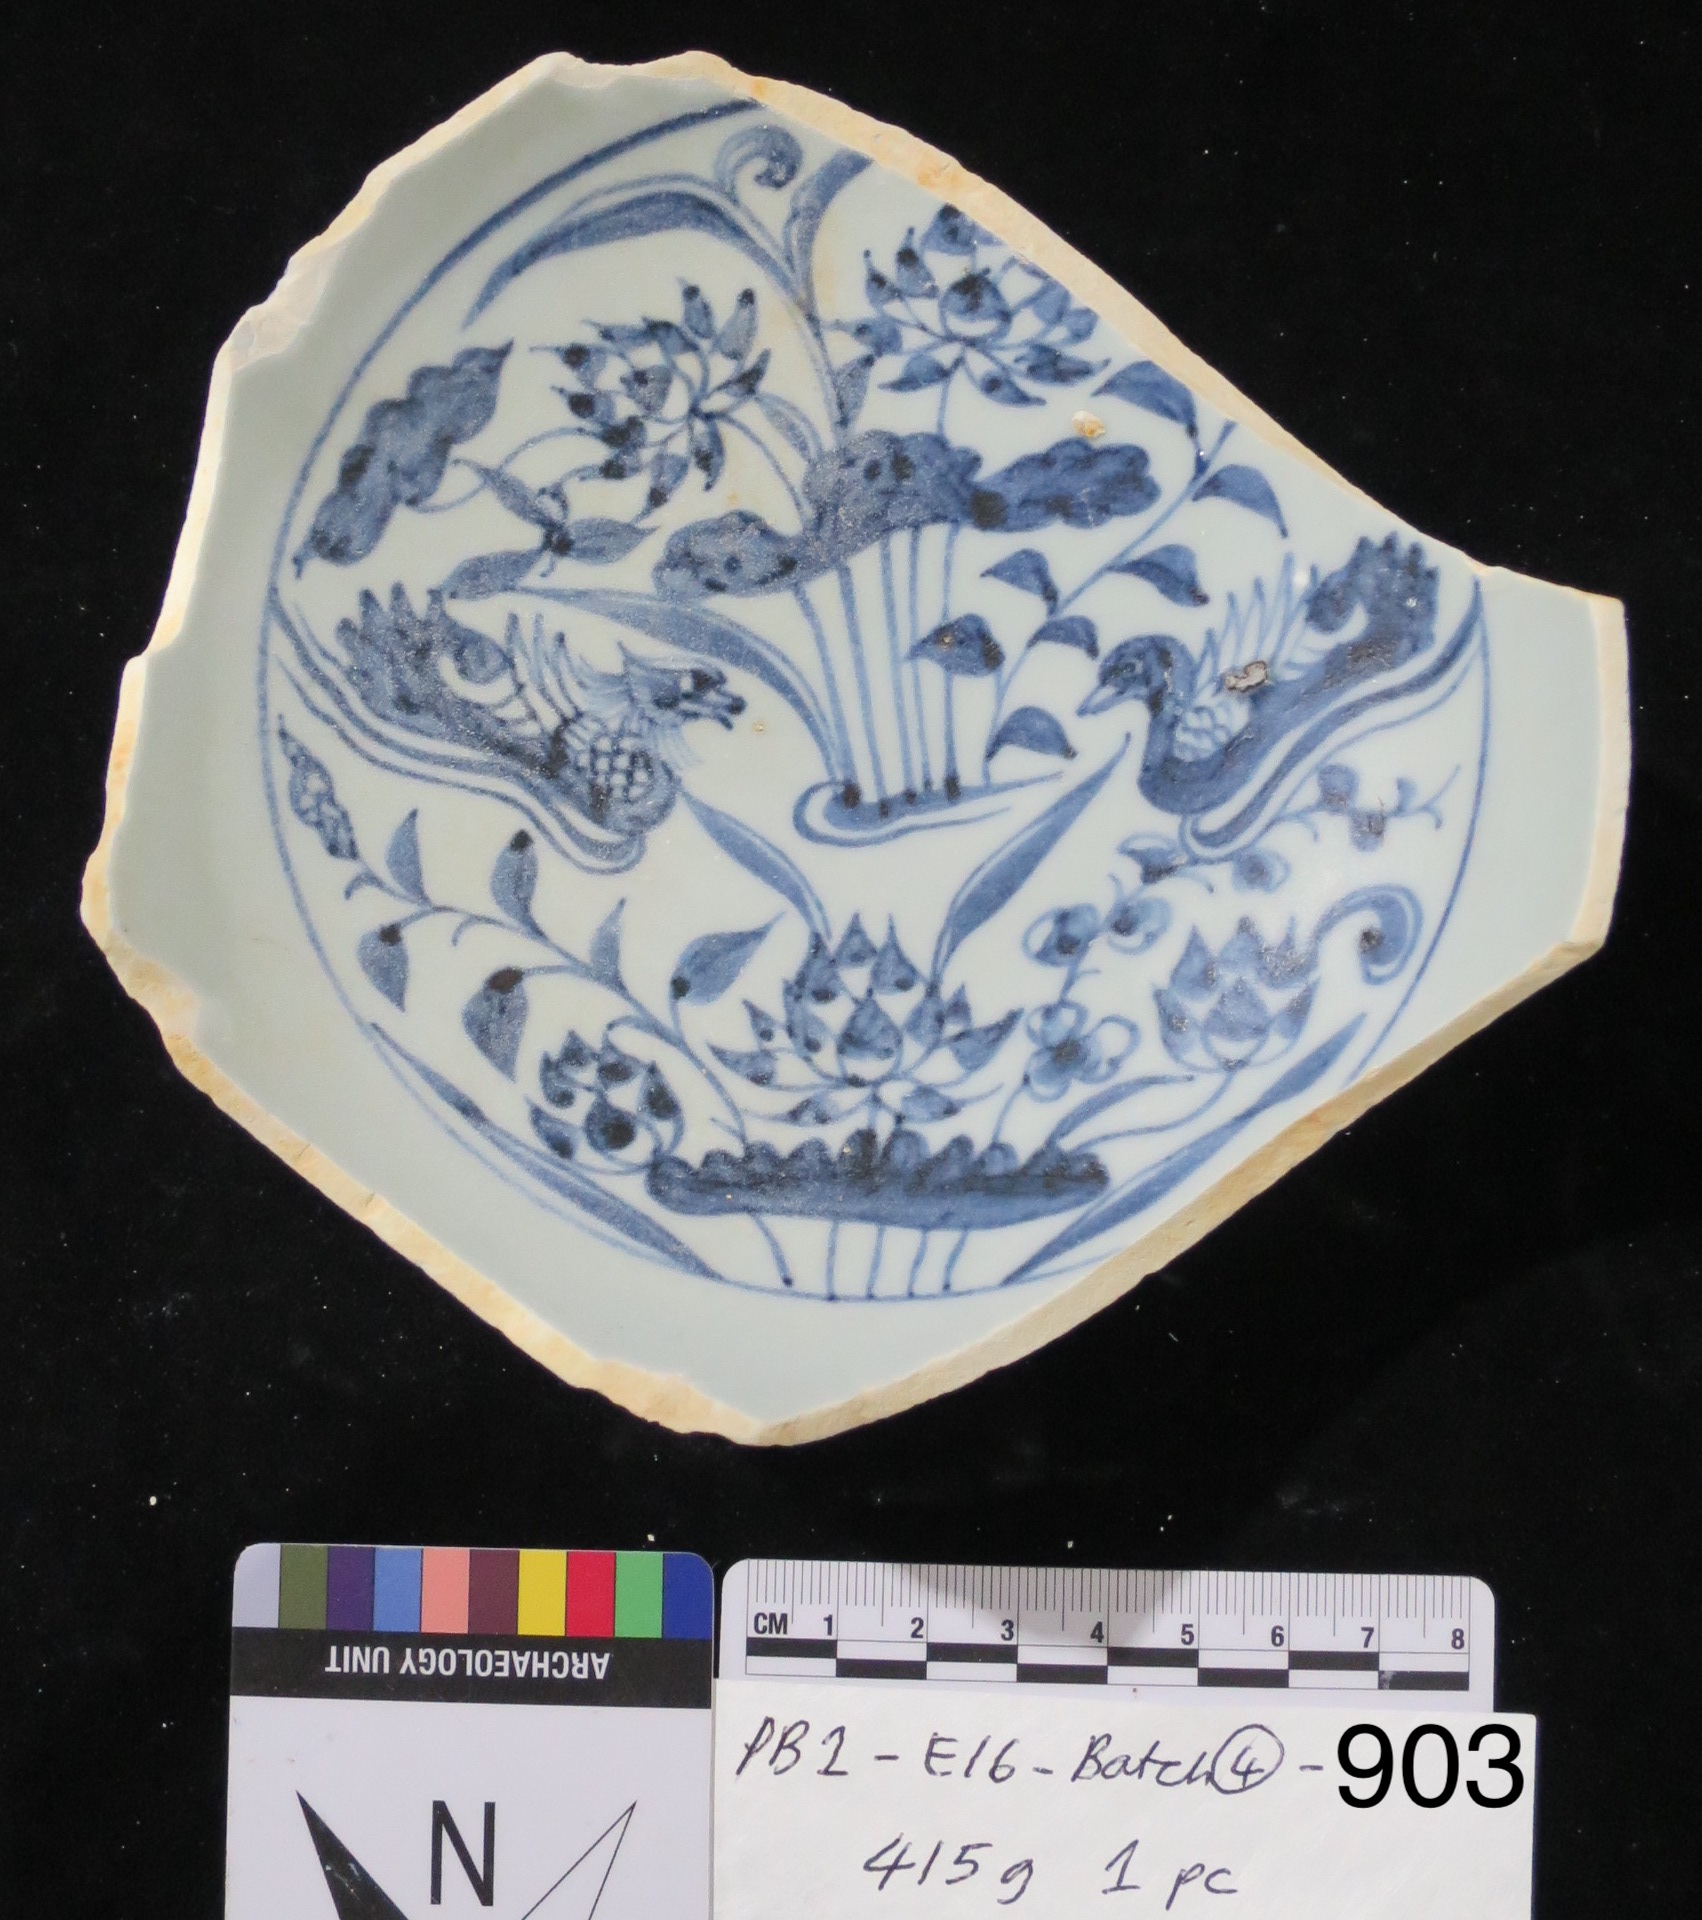 ARCHAEOLOGY UNIT
N
CM 1 2 3 4 5 6 7 8
PB2 - E16 - Batch ④ - 903
415g 1 pc